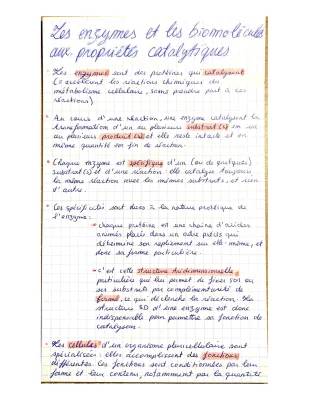 Les enzymes et les biomolécules
aux propriétés catalytiques
Les enzymes sont des protéines qui catalysent
(= accélèrent les réactions chimiques du
métabolisme cellulaire, sans prendre part à ces
réactions)
Au cours d'une réaction, une enzyme catalysent la
transformation d'un ou plusieurs substrat(s) en un
ou plusieurs produit(s) et elle reste intacte et en
même quantité en fin de réaction.
Chaque enzyme est spécifique d'un (ou de quelques)
substrat(s) et d'une réaction : elle catalyse toujours
la même réaction avec les mêmes substrats, et rien
d'autre.
Ces spécificités sont dues à la nature protéique de
l'enzyme :
→ chaque protéine est une chaîne d'acides
aminés placés dans un ordre précis qui
détermine son repliement sur elle-même, et
donc sa forme particulière.
→ c'est cette structure tridimensionnelle
particulière qui lui permet de fixer son ou
ses substrats par complémentarité de
forme, ce qui déclenche la réaction. La
structure 3D d'une enzyme est donc
indispensable pour permettre sa fonction de
catalyseur.
Les cellules d'un organisme pluricellulaire sont
spécialisées : elles accomplissent des fonctions
différentes. Ces fonctions sont conditionnées par leur
forme et leur contenu, notamment par la quantité